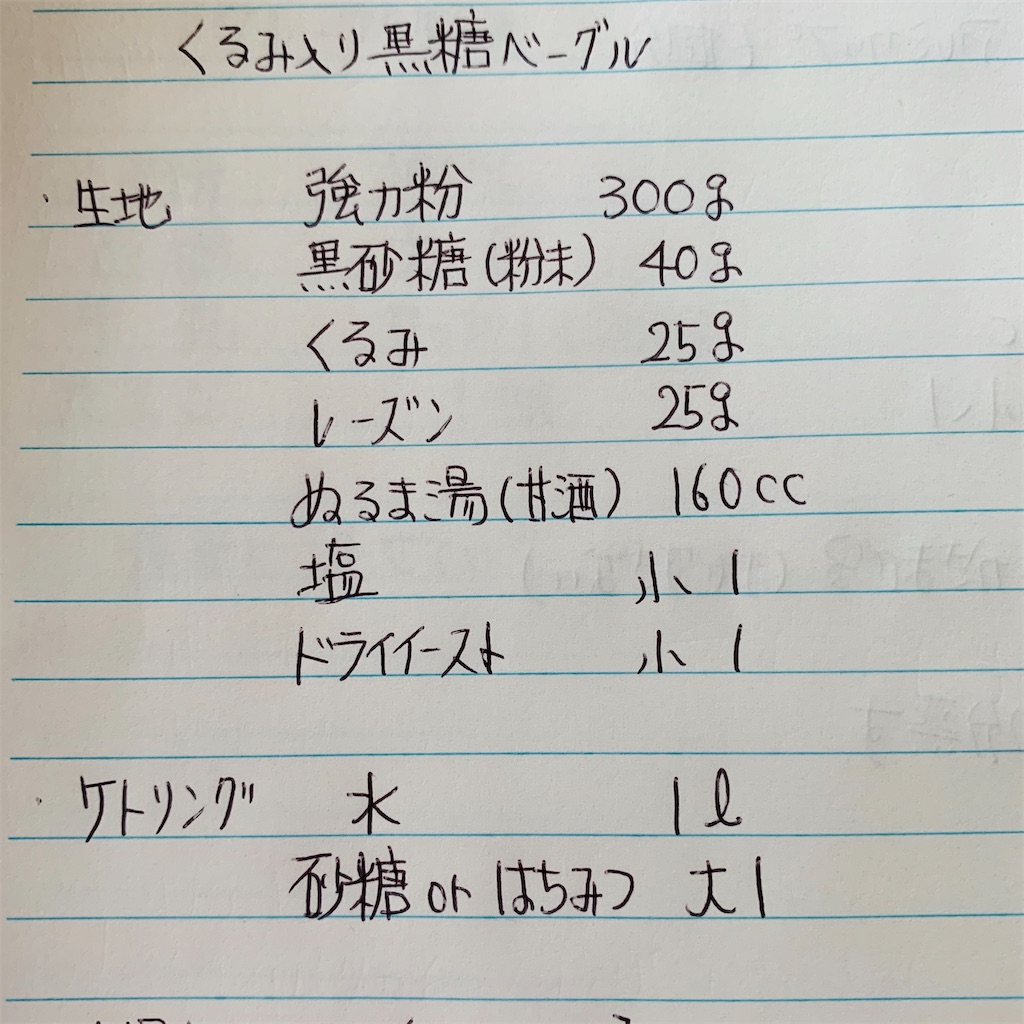 くるみ入り黒糖ベーグル
・生地 強力粉 300g
黒砂糖(粉末) 40g
くるみ 25g
レーズン 25g
ぬるま湯(甘酒) 160cc
塩 小1
ドライイースト 小1
・ケトリング 水 1ℓ
砂糖 or はちみつ 大1